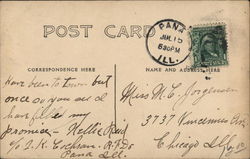 POST CARD
PANA
JUL 15
6 30 PM
ILL.
CORRESPONDENCE HERE
NAME AND ADDRESS HERE
Have been to town but
once so you see I
have filled my
promise - Nellie Reid
c/o S. K. Cochran - R.F.D.
Pana Ill.
Miss M. E. Jorgensen
3737
Chicago Ill